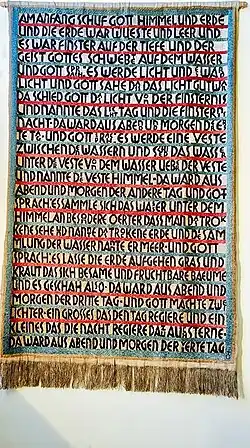 AM ANFANG SCHUF GOTT HIMMEL UND ERDE
UND DIE ERDE WAR WUESTE UND LEER UND
ES WAR FINSTER AUF DER TIEFE UND DER
GEIST GOTTES SCHWEBTE AUF DEM WASSER
UND GOTT ES WERDE LICHT UND
LICHT UND GOTT SAHE DAS LICHT GUT
DA SCHIED GOTT LICHT DER FINSTERNIS
UND NANNTE DAS TAG UND DIE FINSTERNIS
NACHT DA WARD AUS ABEND MORGEN
UND GOTT ES WERDE EINE VESTE
ZWISCHEN WASSERN UND DAS WASSER
UNTER DER VESTE DEM WASSER UEBER DER VESTE
UND NANNTE DIE VESTE HIMMEL DA WARD AUS
ABEND UND MORGEN DER ANDERE TAG UND GOTT
SPRACH ES SAMMLE SICH DAS WASSER UNTER DEM
HIMMEL AN BESONDERE OERTER DASS MAN DAS TRO
KENE SEHE UND NANNTE DAS TROKENE ERDE UND DIE SAM
LUNG DER WASSER NANTE ER MEER UND GOTT
SPRACH ES LASSE DIE ERDE AUFGEHEN GRAS UND
KRAUT DAS SICH BESAME UND FRUCHTBARE BAEUME
ES GESCHAH ALSO DA WARD AUS ABEND UND
MORGEN DER DRITTE TAG UND GOTT MACHTE ZWEI
LICHTER EIN GROSSES DAS DEN TAG REGIERE UND EIN
KLEINES DAS DIE NACHT REGIERE DAZU AUCH STERNE
DA WARD AUS ABEND UND MORGEN DER VIERTE TAG